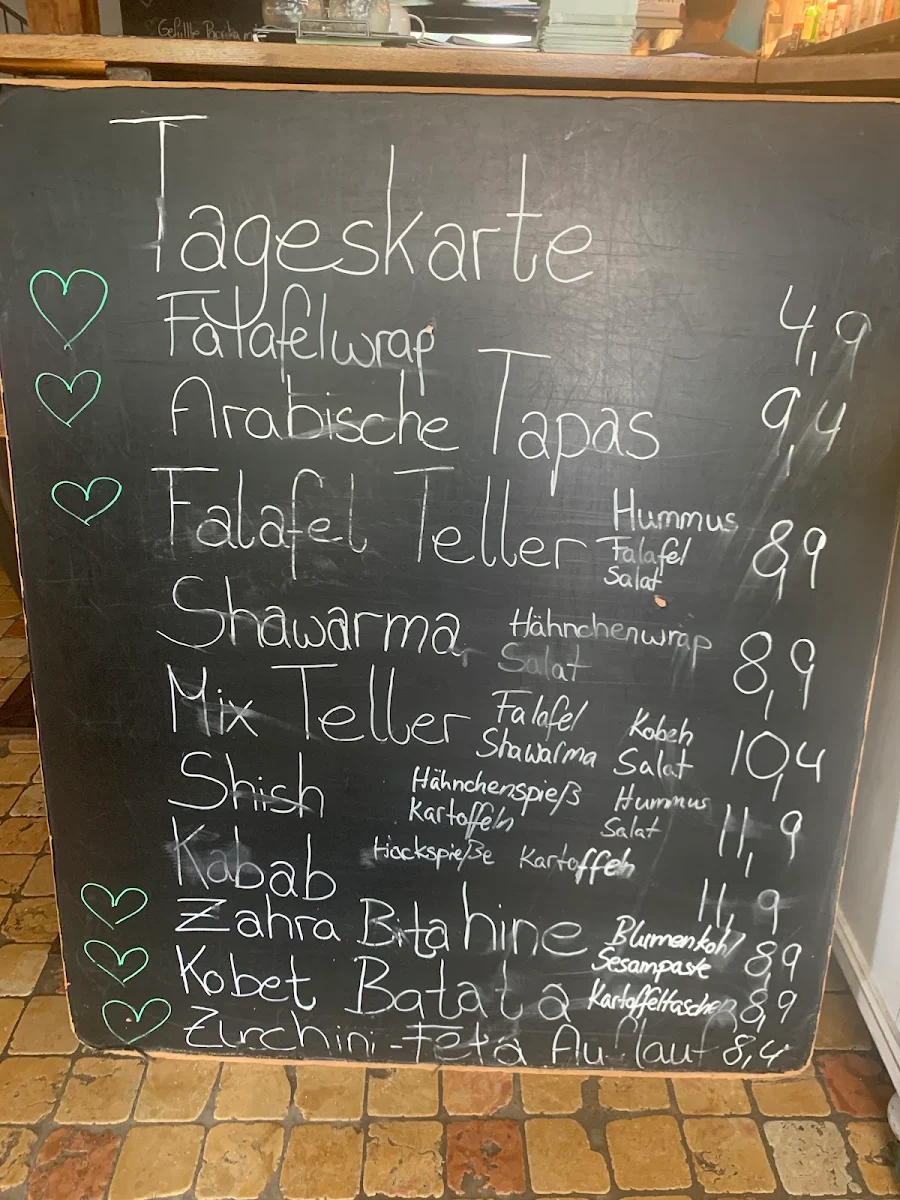 Gefüllte Paprika mi
Tageskarte
Falafelwrap 4,9
Arabische Tapas 9,4
Falafel Teller Hummus Falafel Salat 8,9
Shawarma Hähnchenwrap Salat 8,9
Mix Teller Falafel Kobeh Shawarma Salat 10,4
Shish Hähnchenspieß Hummus Kartoffeln Salat 11,9
Kabab Hackspieße Kartoffeln 11,9
Zahra Bitahine Blumenkohl Sesampaste 8,9
Kobet Batata Kartoffeltaschen 8,9
Zucchini-Feta Auflauf 8,4